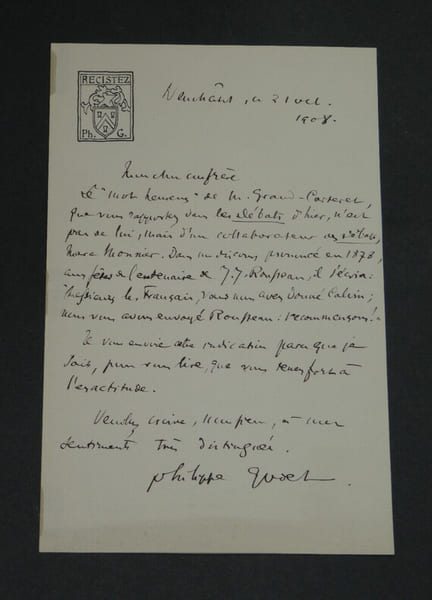 RECISTEZ
Ph. G.
Neuchâtel, le 21 oct.
1908.
Mon cher confrère
Le "mot heureux" de M. Grand-Carteret,
que vous rapportez dans les Débats d'hier, n'est
pas de lui, mais d'un collaborateur des Débats,
Marc Monnier. Dans un discours prononcé en 1878,
aux fêtes du Centenaire de J. J. Rousseau, il s'écria:
Messieurs les Français, vous nous avez donné Calvin;
nous vous avons envoyé Rousseau: recommençons!"
Je vous envoie cette indication parce que je
sais, pour vous lire, que vous tenez fort à
l'exactitude.
Veuillez croire, Monsieur, à mes
sentiments très distingués.
Philippe Godet.